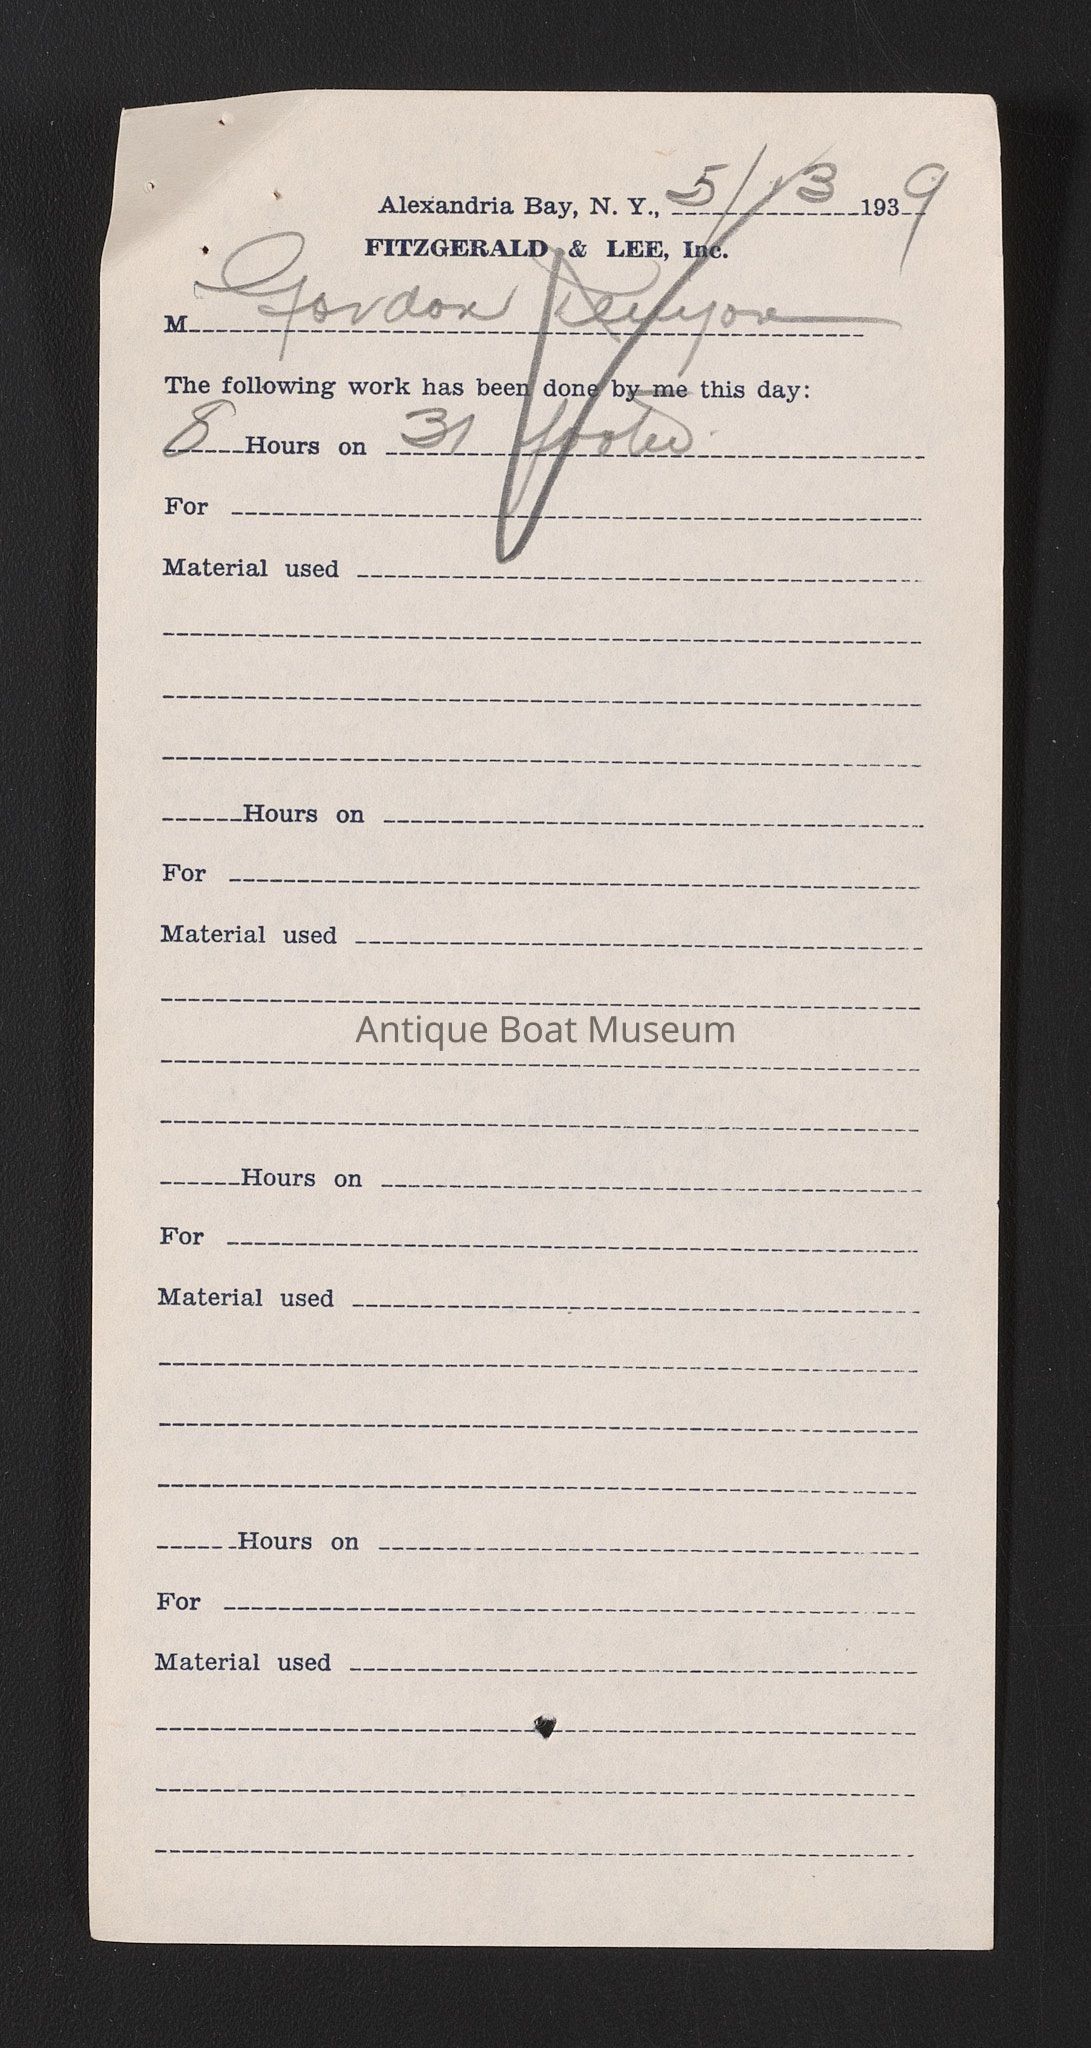 Alexandria Bay, N. Y., 5/13 1939
FITZGERALD & LEE, Inc.
M Gordon Kenyon
The following work has been done by me this day:
8 Hours on 31 footer
For
Material used
Hours on
For
Material used
Antique Boat Museum
Hours on
For
Material used
Hours on
For
Material used